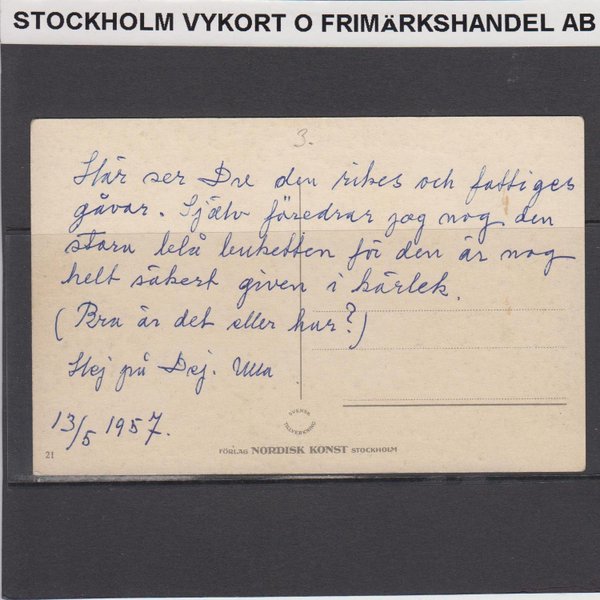 STOCKHOLM VYKORT O FRIMÄRKSHANDEL AB
3.
Här ser Du den rikes och fattiges
gåvar. Själv föredrar jag nog den
stora blå buketten för den är nog
helt säkert given i kärlek.
(Bra är det eller hur?)
Hej på Dej. Ulla
13/5 1957.
SVENSK
TILLVERKNING
21
FÖRLAG NORDISK KONST STOCKHOLM